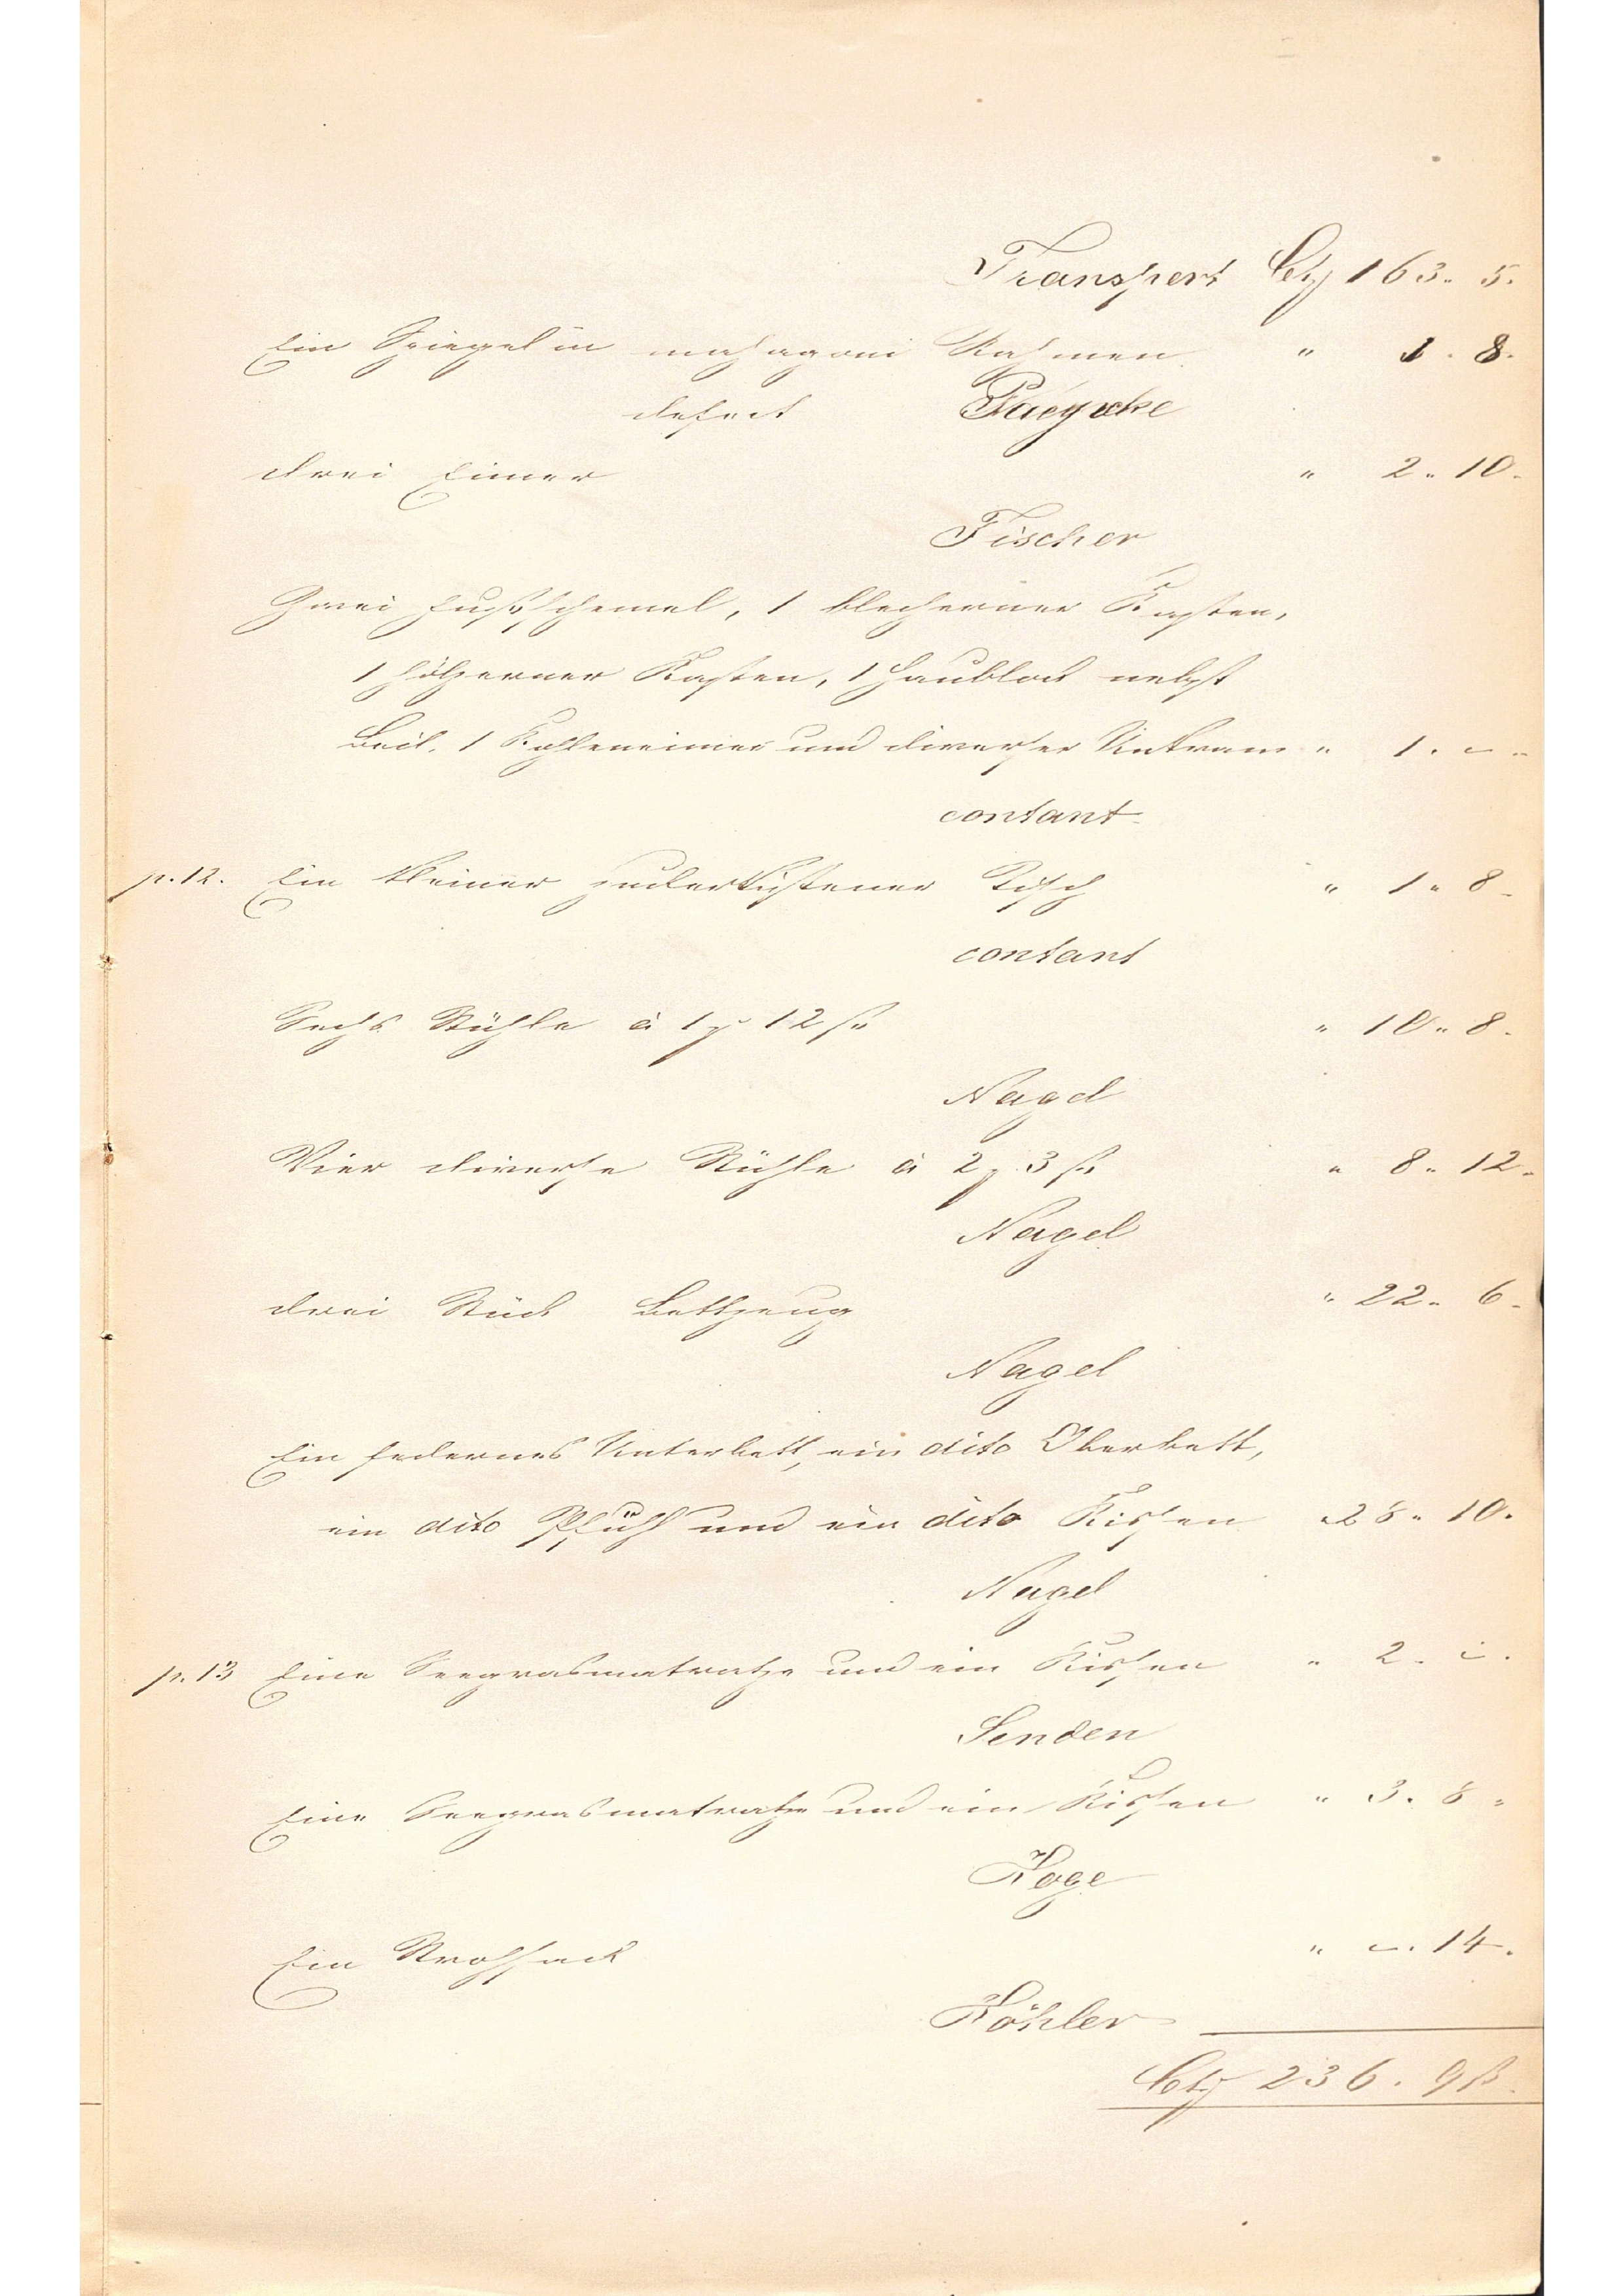 Transport Ct. 163. 5.
Ein Spiegel in mahagoni Rahmen " 1. 8.
defect Paeycke
drei Eimer " 2. 10.
Fischer
Zwei Fußschemel, 1 blecherner Kasten,
1 hölzerner Kasten, 1 Haublock nebst
Beil, 1 Kohleneimer und diverser Unkram " 1. -
contant
p. 12. Ein kleiner zuckerkistener Tisch " 1. 8
contant
Sechs Stühle à 1 12 ß " 10. 8.
Nagel
Vier diverse Stühle à 2 3 ß " 8. 12.
Nagel
drei Stück Bettzeug " 22. 6.
Nagel
Ein federnes Unterbett, ein dito Oberbett,
ein dito Pfühl und ein dito Kissen " 28. 10.
Nagel
p. 13 Eine Seegrasmatratze und ein Kissen " 2. -
Senden
Eine Seegrasmatratze und ein Kissen " 3. 8
Koge
Ein Strohsack " -. 14.
Köhler
Ct. 236. 9 ß.